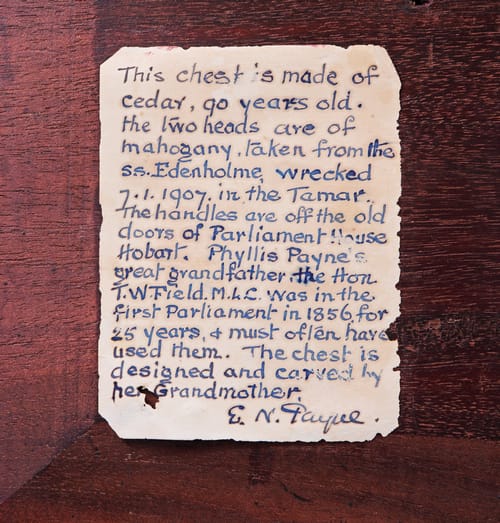 This chest is made of
cedar, 90 years old.
the two heads are of
mahogany, taken from the
ss. Edenholme, wrecked
7.1.1907. in the Tamar.
The handles are off the old
doors of Parliament House
Hobart. Phyllis Payne's
great grandfather the Hon
T.W. Field. M.L.C. was in the
first Parliament in 1856, for
25 years, & must often have
used them. The chest is
designed and carved by
her Grandmother.
E. N. Payne.